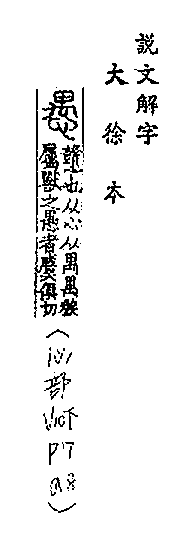 説文解字
大徐本
愚
戇也从心从禺禺猴
屬獸之愚者麌俱切
(心部 10下 P7 a8)